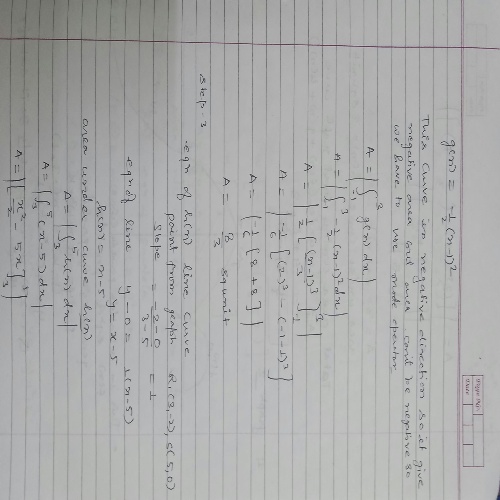 g(x) = -1/2 (x-1)²
This curve in negative direction so it give
negative area and area can't be negative so
we have to use mode operator
A = |∫₋₁³ g(x) dx|
A = |∫₋₁³ -1/2 (x-1)² dx|
A = |-1/2 [(x-1)³/3]₋₁³|
A = |-1/6 [(2)³ - (-1-1)³]|
A = |-1/6 [8+8]|
A = 8/3 sq unit
Step-3
eqn of h(x) line curve
point from graph (3,-2), (5,0)
Slope = -2-0/3-5 = 1
eqn of line y-0 = 1(x-5)
y = x-5
h(x) = x-5
area under curve h(x)
A = |∫₃⁵ h(x) dx|
A = |∫₃⁵ (x-5) dx|
A = |[x²/2 - 5x]₃⁵|